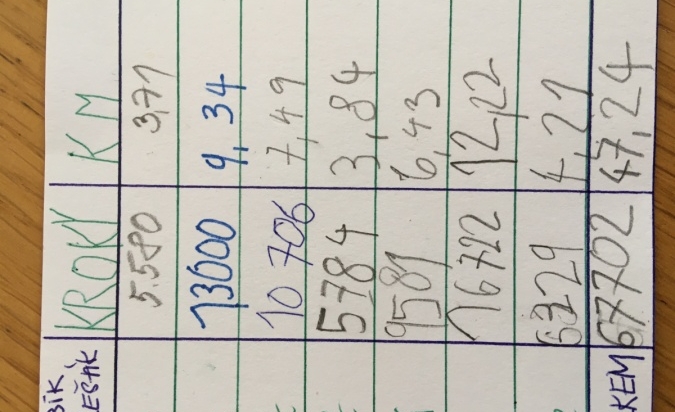 KROKY KM
5.580 3,71
13000 9,34
10 706 7,49
5784 3,84
9581 6,43
16722 12,22
6329 4,21
KEM 67702 47,24